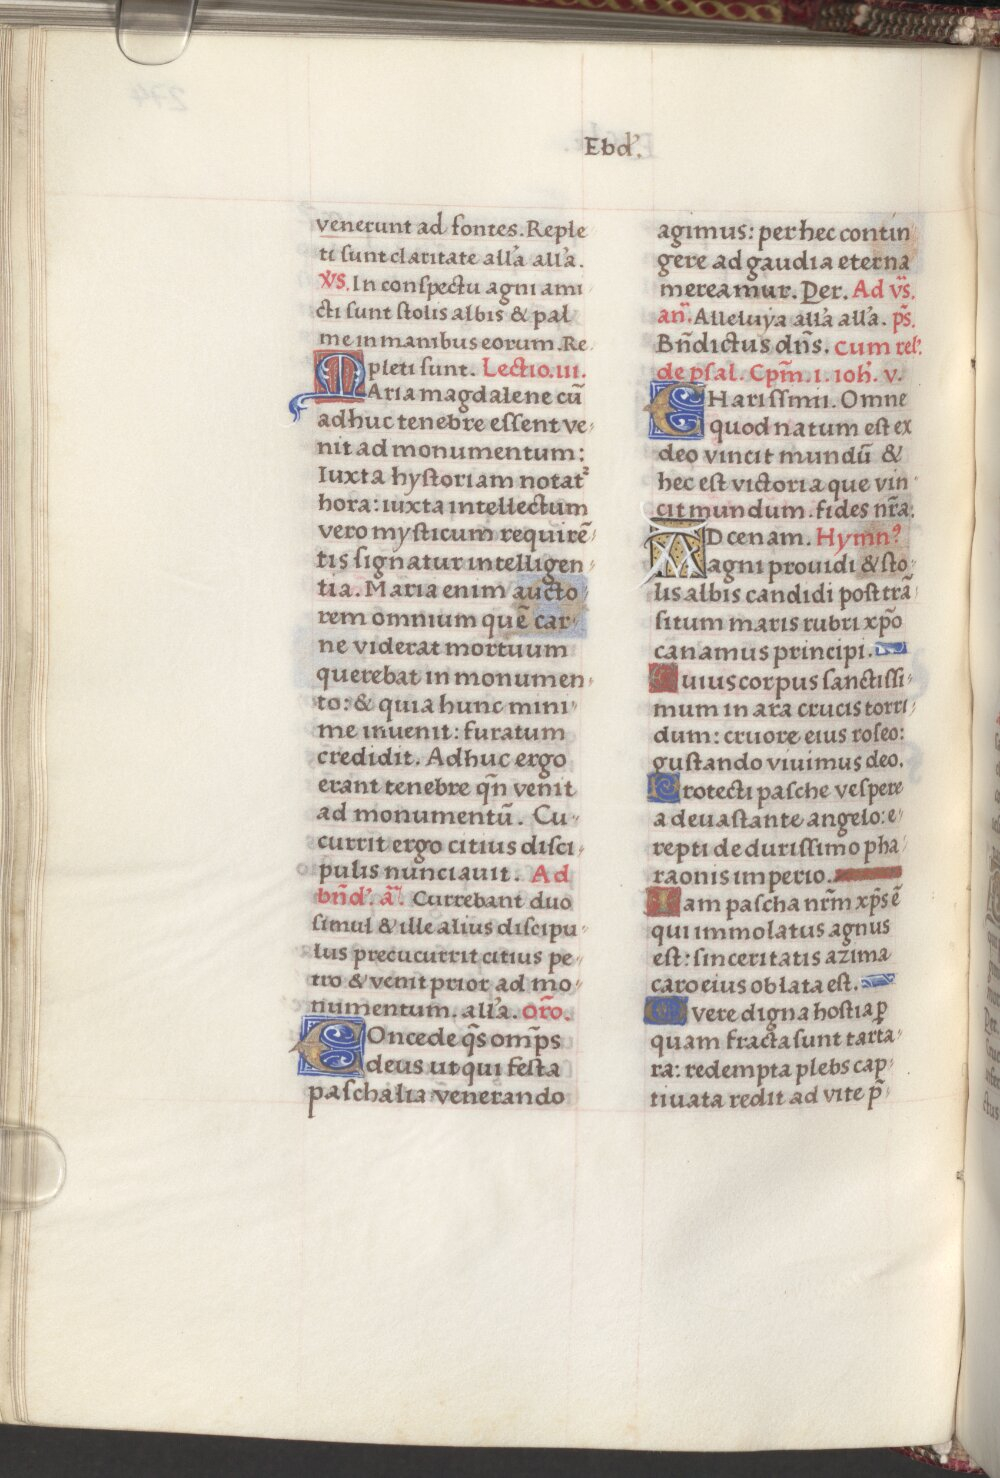 Ebd'.
venerunt ad fontes. Reple
ti sunt claritate all'a all'a.
V̄s. In conspectu agni ami
cti sunt stolis albis & pal
me in manibus eorum. Re
pleti sunt. Lectio. iii.
MAria magdalene cū
adhuc tenebre essent ve
nit ad monumentum:
Iuxta hystoriam notat²
hora: iuxta intellectum
vero mysticum requirē
tis signatur intelligen
tia. Maria enim aucto
rem omnium quē car
ne viderat mortuum
querebat in monumen
to: & quia hunc mini
me invenit: furatum
credidit. Adhuc ergo
erant tenebre qn̄ venit
ad monumentū. Cu
currit ergo citius disci
pulis nunciavit. Ad
bn̄d'. a̅. Currebant duo
simul & ille alius discipu
lus precucurrit citius pe
tro & venit prior ad mo
numentum. all'a. Or̄o.
COncede q̄s om̄ps
deus ut qui festa
paschalia venerando
agimus: per hec contin
gere ad gaudia eterna
mereamur. Per. Ad v̄s.
an̄. Alleluya all'a all'a. p̄s.
Bn̄dictus dn̄s. cum rel'.
de psal. Cpm̄. 1. ioh'. v.
CHarissimi. Omne
quod natum est ex
deo vincit mundū &
hec est victoria que vin
cit mundum. fides nr̄a.
AD cenam. Hymn⁹
agni providi & sto
lis albis candidi post trā
situm maris rubri xp̄o
canamus principi.
Cuius corpus sanctissi
mum in ara crucis torri
dum: cruore eius roseo:
gustando vivimus deo.
Protecti pasche vespere
a devastante angelo: e
repti de durissimo pha
raonis imperio.
Iam pascha nr̄m xp̄s ē
qui immolatus agnus
est: sinceritatis azima
caro eius oblata est.
O vere digna hostia ꝑ
quam fracta sunt tarta
ra: redempta plebs cap
tivata redit ad vite p̄